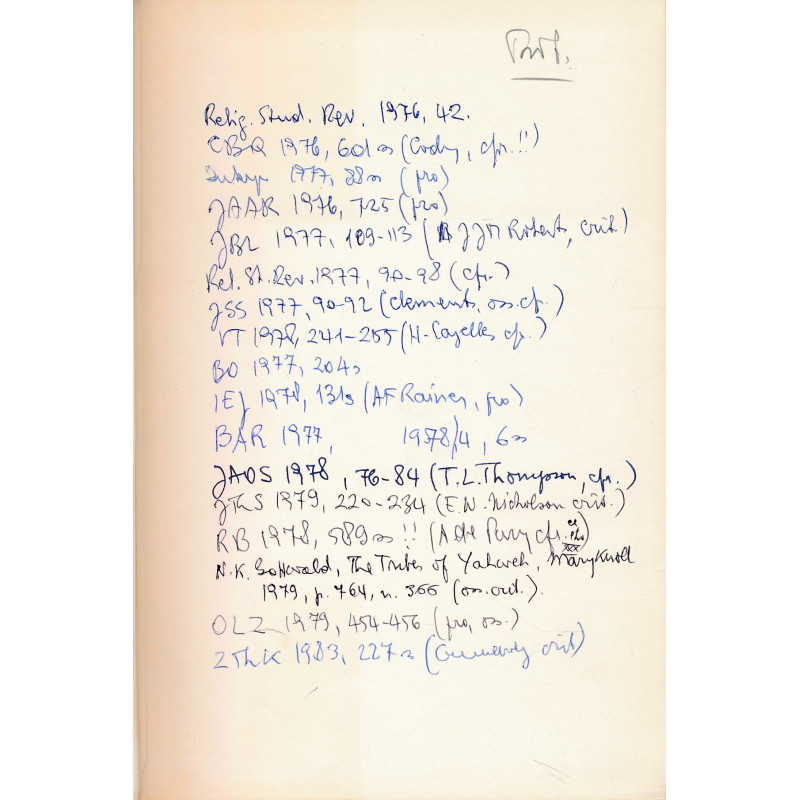 Relig. Stud. Rev. 1976, 42.
CBQ 1976, 601 ss (Cody, cfr.!!)
1977, 88 ss (pro)
JAAR 1976, 725 (pro)
JBL 1977, 109-113 (JJM Roberts, crit.)
Rel. St. Rev. 1977, 90-98 (cfr.)
JSS 1977, 90-92 (Clements, oss. cfr.)
VT 1978, 241-255 (H. Cazelles cfr.)
BO 1977, 204s
IEJ 1978, 131s (AF Rainey, pro)
BAR 1977, 1978/4, 6 ss
JAOS 1978, 76-84 (T.L. Thompson, cfr.)
JThS 1979, 220-234 (E.W. Nicholson crit.)
RB 1978, 589 ss !! (A de Pury cfr.
N.K. Gottwald, The Tribes of Yahweh, Maryknoll
1979, p. 764, n. 366 (oss. crit.).
OLZ 1979, 454-456 (pro, oss.)
ZThK 1983, 227 ss (crit)